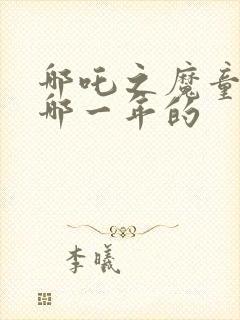 哪吒之魔童
哪一年的
李曦